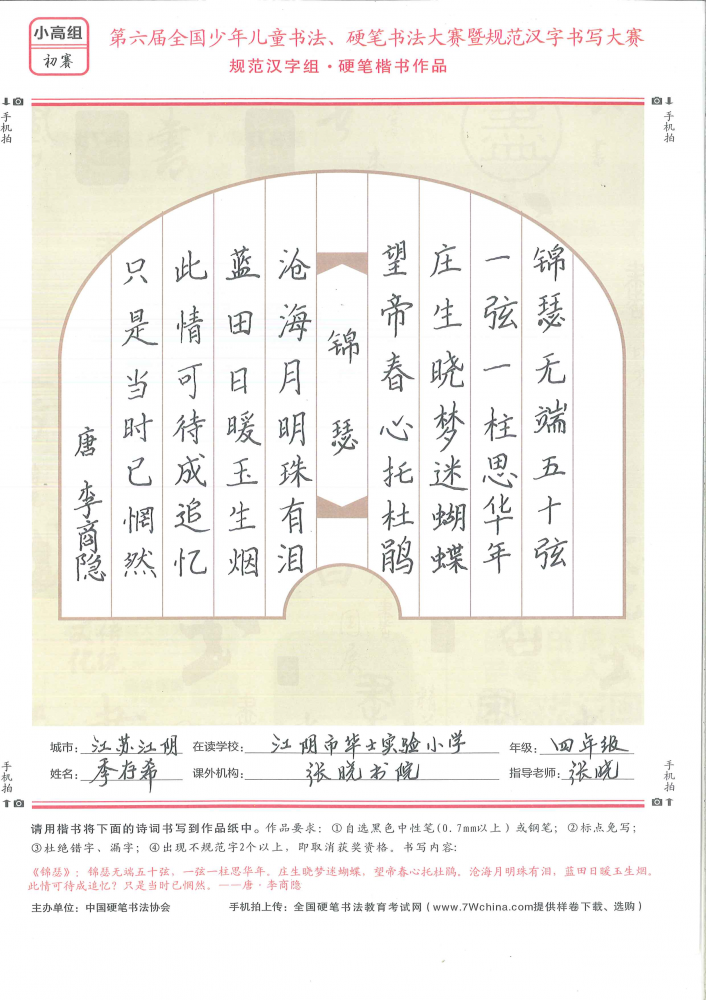 小高组
初赛
第六届全国少年儿童书法、硬笔书法大赛暨规范汉字书写大赛
规范汉字组·硬笔楷书作品
手机拍
手机拍
锦瑟无端五十弦
一弦一柱思华年
庄生晓梦迷蝴蝶
望帝春心托杜鹃
锦瑟
沧海月明珠有泪
蓝田日暖玉生烟
此情可待成追忆
只是当时已惘然
唐 李商隐
手机拍
手机拍
城市：江苏江阴 在读学校：江阴市华士实验小学 年级：四年级
姓名：季存希 课外机构：张晓书院 指导老师：张晓
请用楷书将下面的诗词书写到作品纸中。作品要求：①自选黑色中性笔(0.7mm以上）或钢笔；②标点免写；
③杜绝错字、漏字；④出现不规范字2个以上，即取消获奖资格。书写内容：
《锦瑟》：锦瑟无端五十弦，一弦一柱思华年。庄生晓梦迷蝴蝶，望帝春心托杜鹃。沧海月明珠有泪，蓝田日暖玉生烟。
此情可待成追忆？只是当时已惘然。——唐·李商隐
主办单位：中国硬笔书法协会 手机拍上传：全国硬笔书法教育考试网（www.7Wchina.com提供样卷下载、选购）